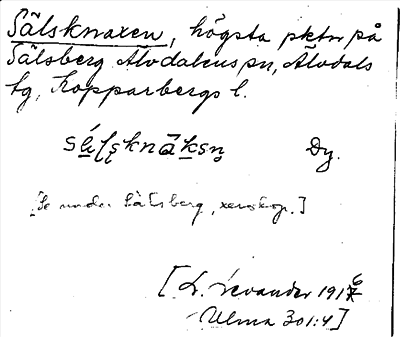 Sälsknaxen, högsta pktn på
Sälsberg Älvdalens sn, Älvdals
tg, Kopparbergs l.
Dy.
[Se under Sälsberg, xeroskop.]
[L. Levander 1916
Ulma 301:4]